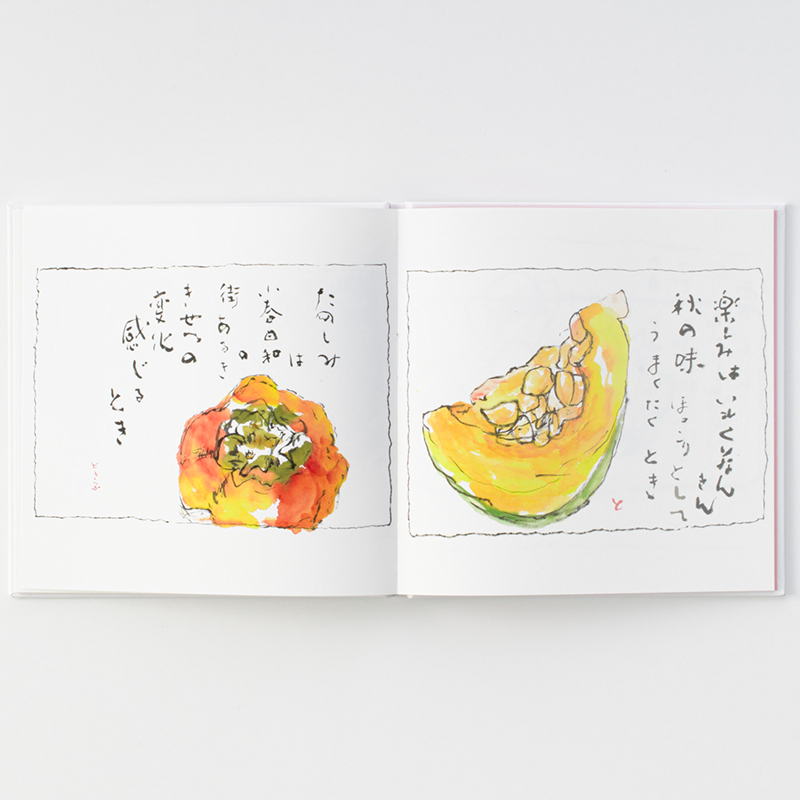 楽しみは いもくりなん
きん
秋の味
ほっこりとして
うまくたく とき
と
たのしみ
は
小春日和
の
街あるき
きせつの
変化
感じる
とき